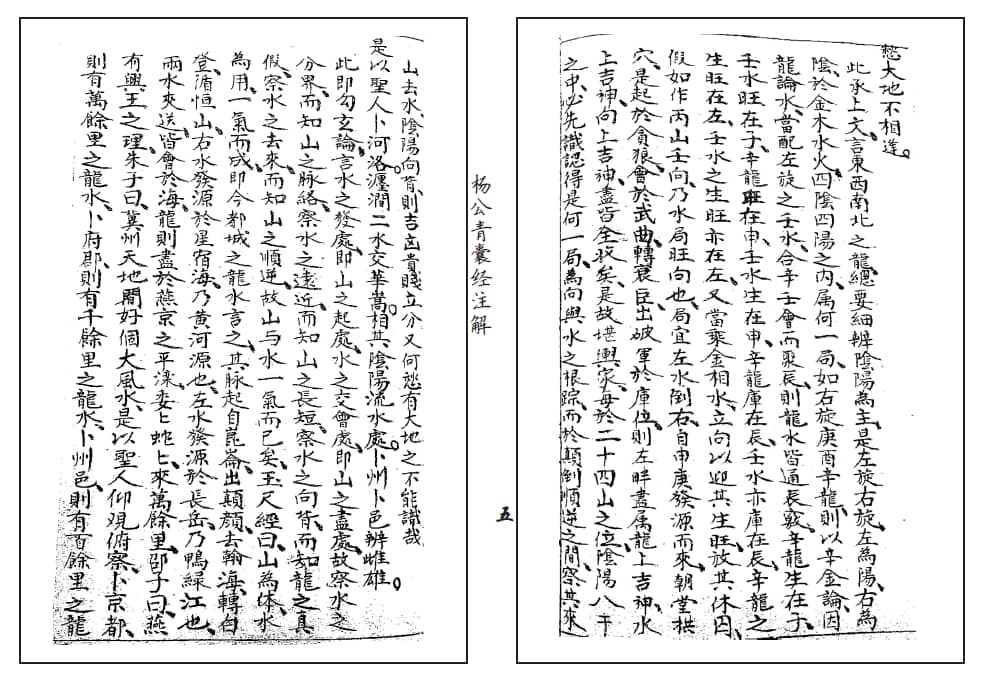 愁大地不相逢。
此承上文、言東西南北之龍總要細辨陰陽為主、是左旋右旋、左為陽、右為
陰、於金木水火、四陰四陽之内、属何一局、如右旋庚酉辛龍、則以辛金論、因
龍論水、當配左旋之壬水、合辛壬會而聚辰、則龍水皆通辰竅、辛龍生在子、
壬水旺在子、辛龍旺在申、壬水生在申、辛龍庫在辰、壬水亦庫在辰、辛龍之
生旺在左、壬水之生旺亦在左、又當乘金相水、立向以迎其生旺、放其休囚、
假如作丙山壬向、乃水局旺向也、局宜左水倒右、自申庚發源而來、朝堂拱
穴、是起於貪狼、會於武曲、轉衰臣、出破軍於庫位、則左畔盡属龍上吉神、水
上吉神、向上吉神、盡皆全收矣、是故堪輿家、每於二十四山之位、陰陽八干
之中、必先識認得是何一局、為向與水之根踪、而於顛倒順逆之間、察其來
杨公青囊经注解
五
山去水、陰陽向背、則吉凶貴賤立分、又何愁有大地之不能識哉
是以聖人卜河洛、瀍澗二水交華嵩。相其陰陽流水處。卜州卜邑辨雌雄。
此即勾玄論、言水之發處、即山之起處、水之交會處、即山之盡處、故察水之
分界、而知山之脉絡、察水之遠近、而知山之長短、察水之向背、而知龍之真
假、察水之去來、而知山之順逆、故山与水一氣而已矣、玉尺經曰、山為体、水
為用、一氣而成、即今都城之龍水言之、其脉起自崑崙、出顛顔、去翰海、轉白
登、循恒山、右水發源於星宿海、乃黄河源也、左水發源於長岳、乃鴨緑江也、
兩水來送、皆會於海、龍則盡於燕京之平濼、委匕蛇匕、來萬餘里、邵子曰、燕
有興王之理、朱子曰、冀州天地間好個大風水、是以聖人仰观俯察、卜京都、
則有萬餘里之龍水、卜府郡、則有千餘里之龍水、卜州邑、則有百餘里之龍